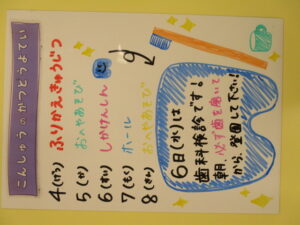 こんしゅうのかつどうよてい
4(げつ) ふりかえきゅうじつ
5(か) おへやあそび
6(すい) しかけんしん
7(もく) ホール
8(きん) おへやあそび
6日(水)は
歯科検診です!
朝、必ず歯を磨いて
から、登園して下さい!